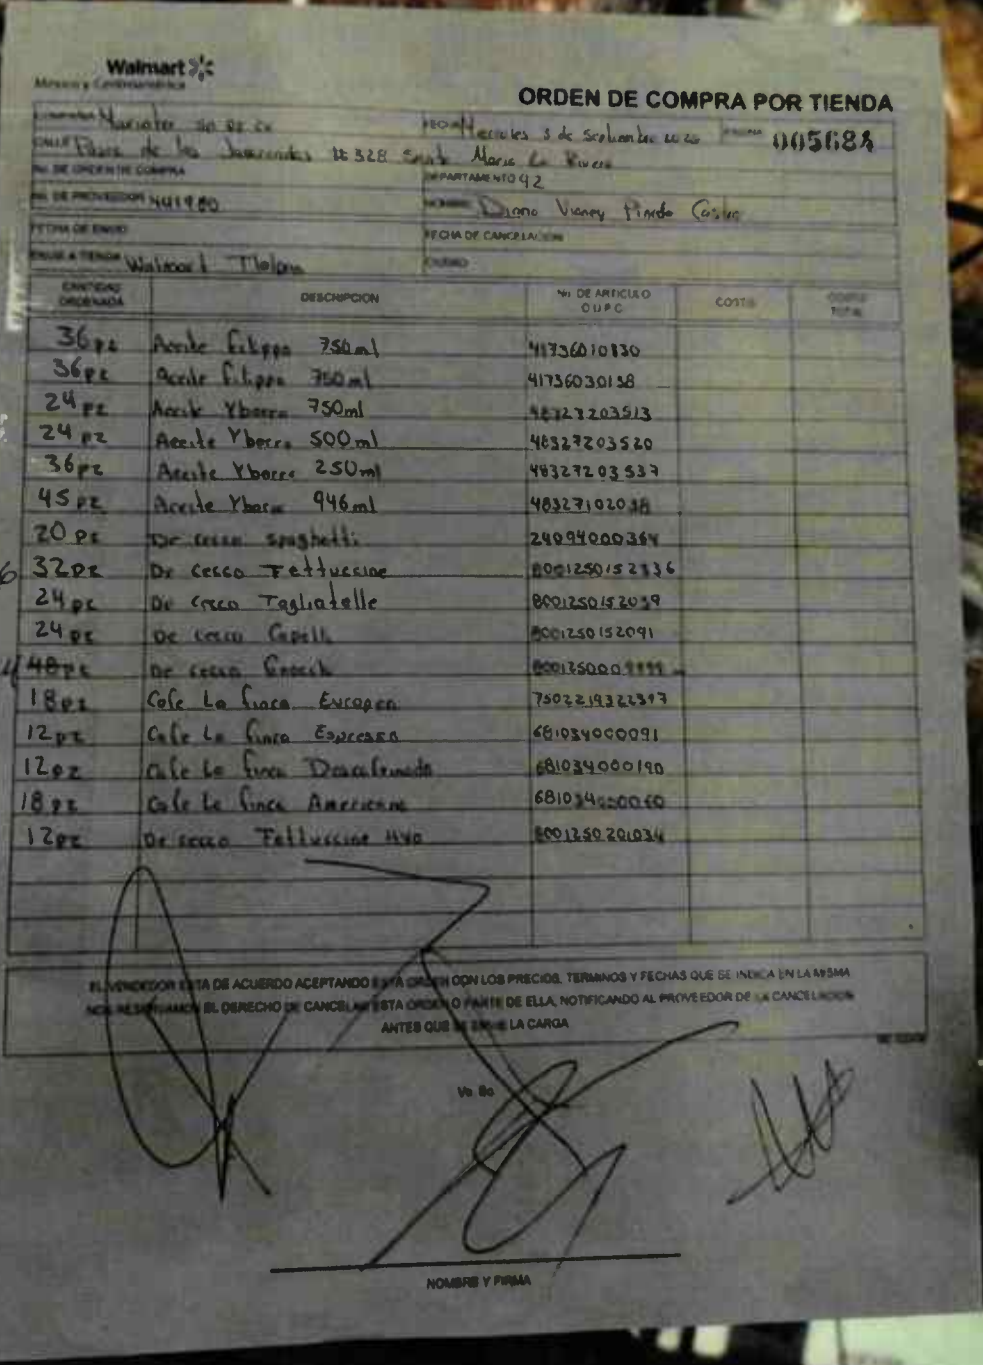 Walmart
México y Centroamérica
ORDEN DE COMPRA POR TIENDA
FECHA Miercoles 3 de Septiembre 2020 005684
CALLE Paseo de las Jacarandas # 328 Santa Maria La Rivera
No. DE ORDEN DE COMPRA DEPARTAMENTO 92
No. DE PROVEEDOR 441980 NOMBRE Vianey Pineda
FECHA DE ENVIO FECHA DE CANCELACION
ENVIE A TIENDA Walmart CIUDAD
CANTIDAD ORDENADA DESCRIPCION No. DE ARTICULO O U.P.C. COSTO COSTO TOTAL
36 pz Aceite Filippo 750ml 41736010830
36 pz Aceite Filippo 750ml 41736030138
24 pz Aceite Ybarra 750ml 48327203513
24 pz Aceite Ybarra 500ml 48327203520
36 pz Aceite Ybarra 250ml 48327203537
45 pz Aceite Ybarra 946ml 48327102038
20 pz De cecco Spaghetti 24094000364
6 32 pz De cecco Fettuccine 8001250152336
24 pz De cecco Tagliatelle 8001250152039
24 pz De cecco Capelli 8001250152091
48 pz De cecco
18 pz Cafe La finca Europeo 7502219322397
12 pz Cafe La finca Espresso 681034000091
12 pz Cafe La finca Descafeinado 681034000190
18 pz Cafe La finca Americano 681034000060
12 pz De cecco Fettuccine Hvo 8001250201034
EL VENDEDOR ESTA DE ACUERDO ACEPTANDO ESTA ORDEN CON LOS PRECIOS, TERMINOS Y FECHAS QUE SE INDICA EN LA MISMA
NOS RESERVAMOS EL DERECHO DE CANCELAR ESTA ORDEN O PARTE DE ELLA, NOTIFICANDO AL PROVEEDOR DE LA CANCELACION
ANTES QUE SE ENVIE LA CARGA
Vo. Bo.
NOMBRE Y FIRMA